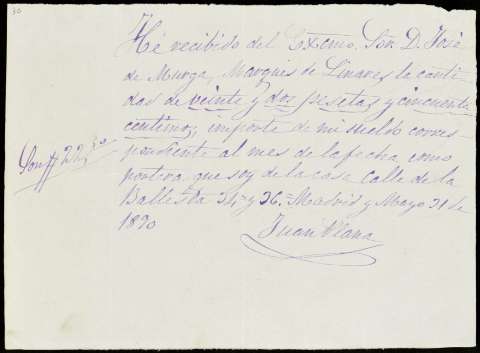 30
Hé recibido del Excmo. Sor. D. José
de Murga, Marques de Linares la canti-
dad de veinte y dos pesetas y cincuenta
centimos; importe de mi sueldo corres-
pondiente al mes de la fecha como
portera que soy de la casa calle de la
Ballesta 34 y 36.=Madrid y Mayo 31 de
1890
Son 22,50
Juan Llana